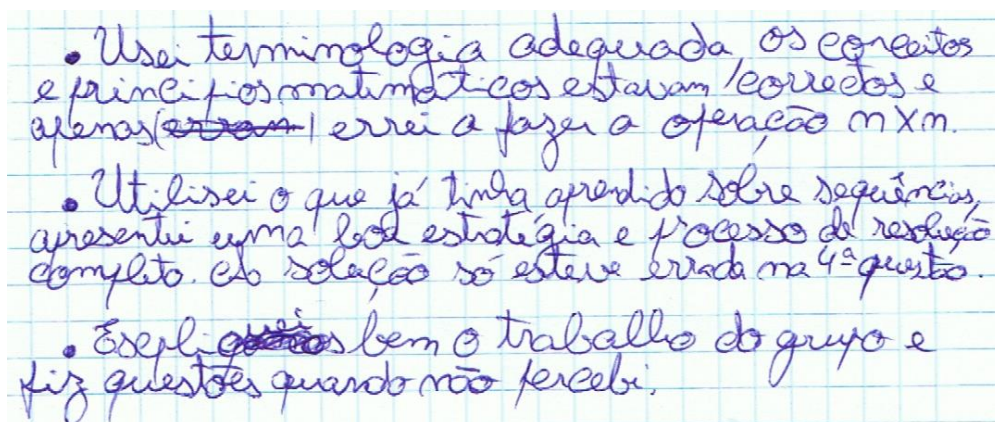 • Usei terminologia adequada, os conceitos
e principios matimáticos estavam correctos e
apenas errei a fazer a operação nxn.
• Utilisei o que já tinha aprendido sobre sequências,
apresentei uma boa estratégia e processo de resolução
completo. A solução só esteve errada na 4ª questão.
• Espliquei bem o trabalho do grupo e
fiz questões quando não percebi.